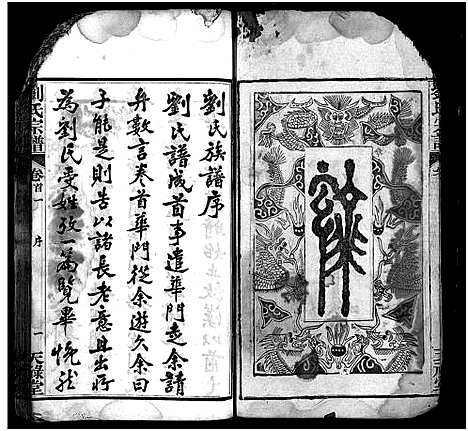 劉氏族譜序
劉氏譜成首事遣華門走余請
弁數言卷首華門從余遊久余曰
子能是則告以諸長老意且出所
為劉氏受姓攷一篇覽畢恍然
劉氏宗譜
卷首一
序
一
天祿堂